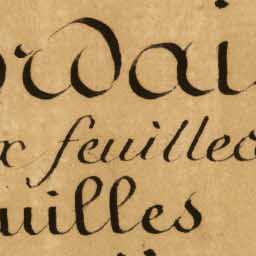 ordai
x feuillec
uilles